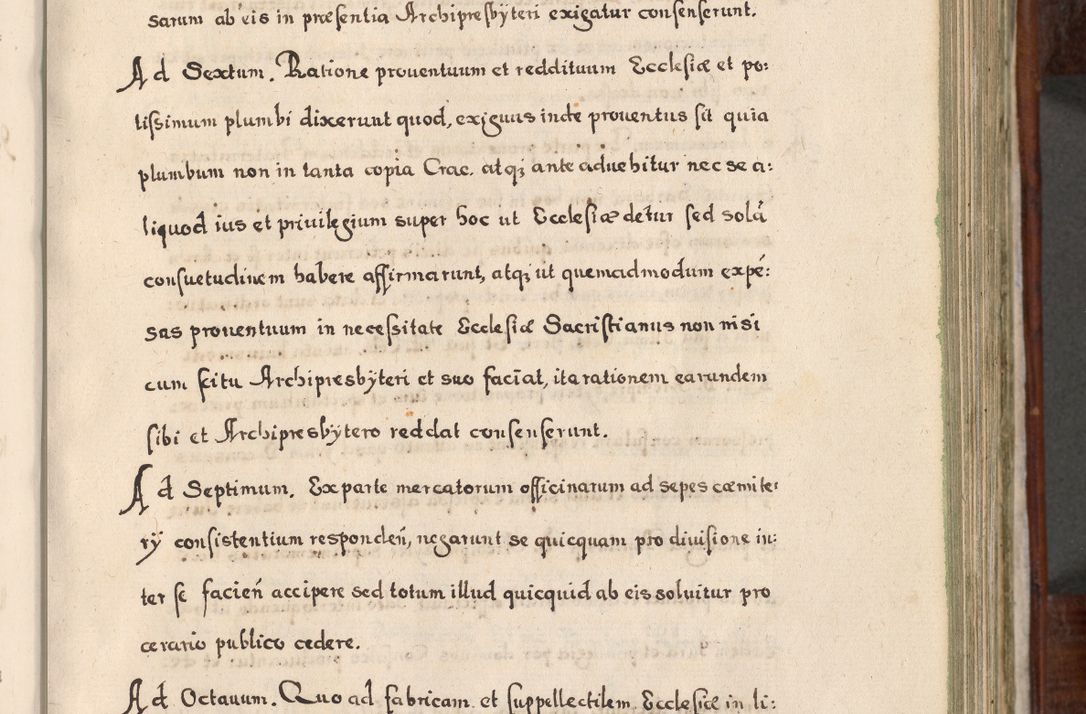 sarum ab eis in præsentia Archipresbÿteri exigatur consenserunt.
Ad Sextum. Ratione prouentuum et reddituum Ecclesiæ et po:
tissimum plumbi dixerunt quod, exiguus inde prouentus sit quia
plumbum non in tanta copia Crac. atqȝ ante aduehitur nec se a:
liquod ius et priuilegium super hoc ut Ecclesiæ detur sed solã
consuetudinem habere affirmarunt, atqȝ ut quemadmodum expẽ:
sas prouentuum in necessitate Ecclesiæ Sacristianus non nisi
cum scitu Archipresbÿteri et suo faciat, ita rationem earundem
sibi et Archipresbÿtero reddat consenserunt.
Ad Septimum. Ex parte mercatorum officinarum ad sepes cæmite:
rÿ consistentium respondeñ, negarunt se quicquam pro diuisione in:
ter se facieñ accipere sed totum illud quicquid ab eis soluitur pro
cerario publico cedere.
Ad Octauum. Quo ad fabricam et suppellectilem Ecclesiæ in li: